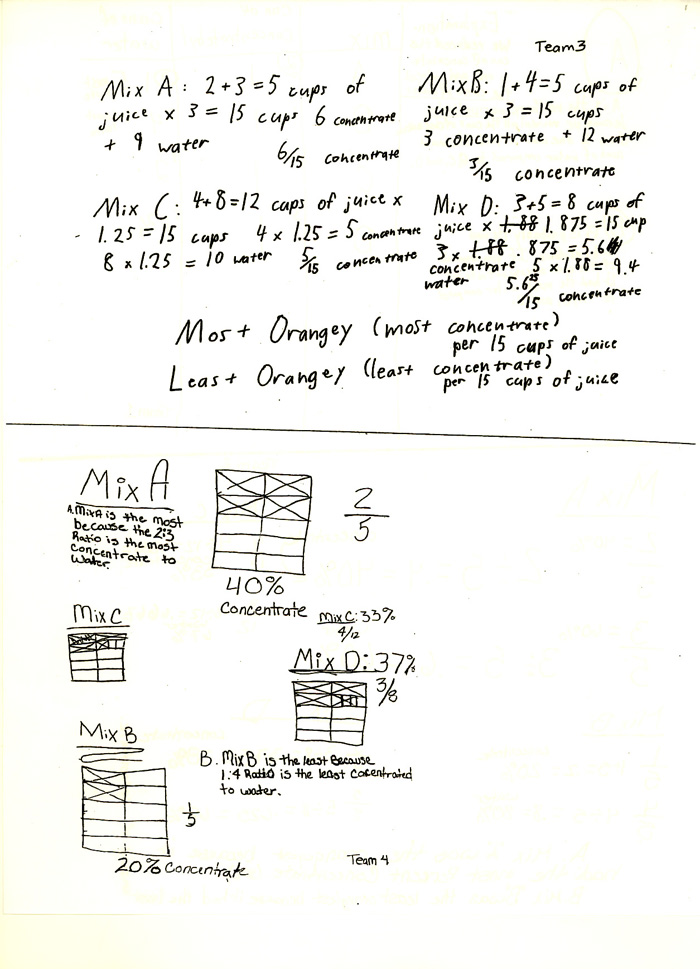 Team3
Mix A: 2+3=5 cups of
juice x 3 = 15 cups 6 concentrate
+ 9 water
6/15 concentrate
MixB: 1+4=5 cups of
juice x 3 = 15 cups
3 concentrate + 12 water
3/15 concentrate
Mix C: 4+8=12 cups of juice x
1.25 = 15 cups 4 x 1.25 = 5 concentrate
8 x 1.25 = 10 water 5/15 concentrate
Mix D: 3+5=8 cups of
juice x 1.88 1.875 = 15 cup
3 x 1.88 .875 = 5.6
concentrate 5 x 1.88 = 9.4
water 5.625/15 concentrate
Most Orangey (most concentrate)
per 15 cups of juice
Least Orangey (least concentrate)
per 15 cups of juice
Mix A
A. MixA is the most
because the 2:3
Ratio is the most
concentrate to
Water.
2/5
40%
Concentrate
Mix C
Mix C: 33%
4/12
Mix D: 37%
3/8
Mix B
1/5
20% Concentrate
B. MixB is the least Because
1:4 Ratio is the least Cocentrated
to water.
Team 4